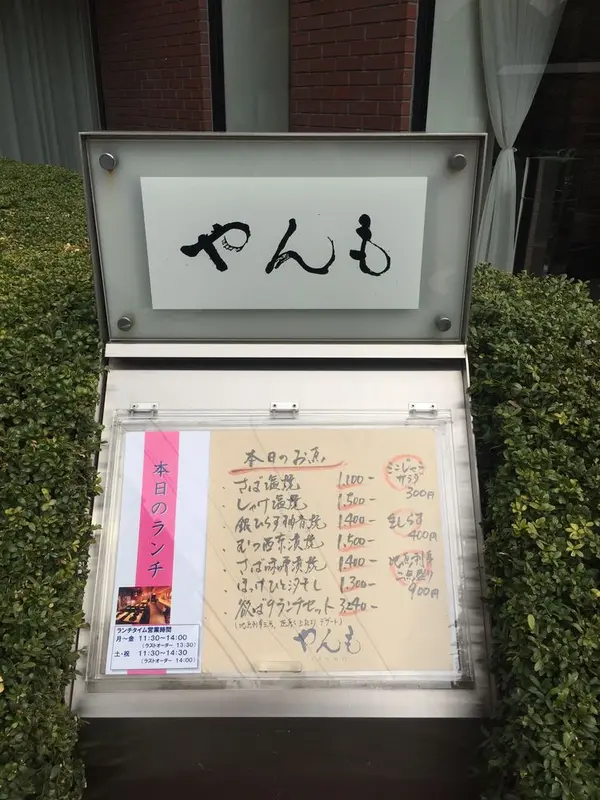 やんも
本日のランチ
ランチタイム営業時間
月～金 11:30～14:00
(ラストオーダー 13:30)
土・祝 11:30～14:30
(ラストオーダー 14:00)
本日のお魚
・さば塩焼 1,100-
・しゃけ塩焼 1,500-
・銀ひらす柚香焼 1,400-
・むつ西京漬焼 1,500-
・さば味噌漬焼 1,400-
・ほっけひと汐干し 1,300-
・銀だらランチセット 3,240-
じゃこサラダ
300円
生しらす
400円
地魚刺身
二点盛り
900円
やんも